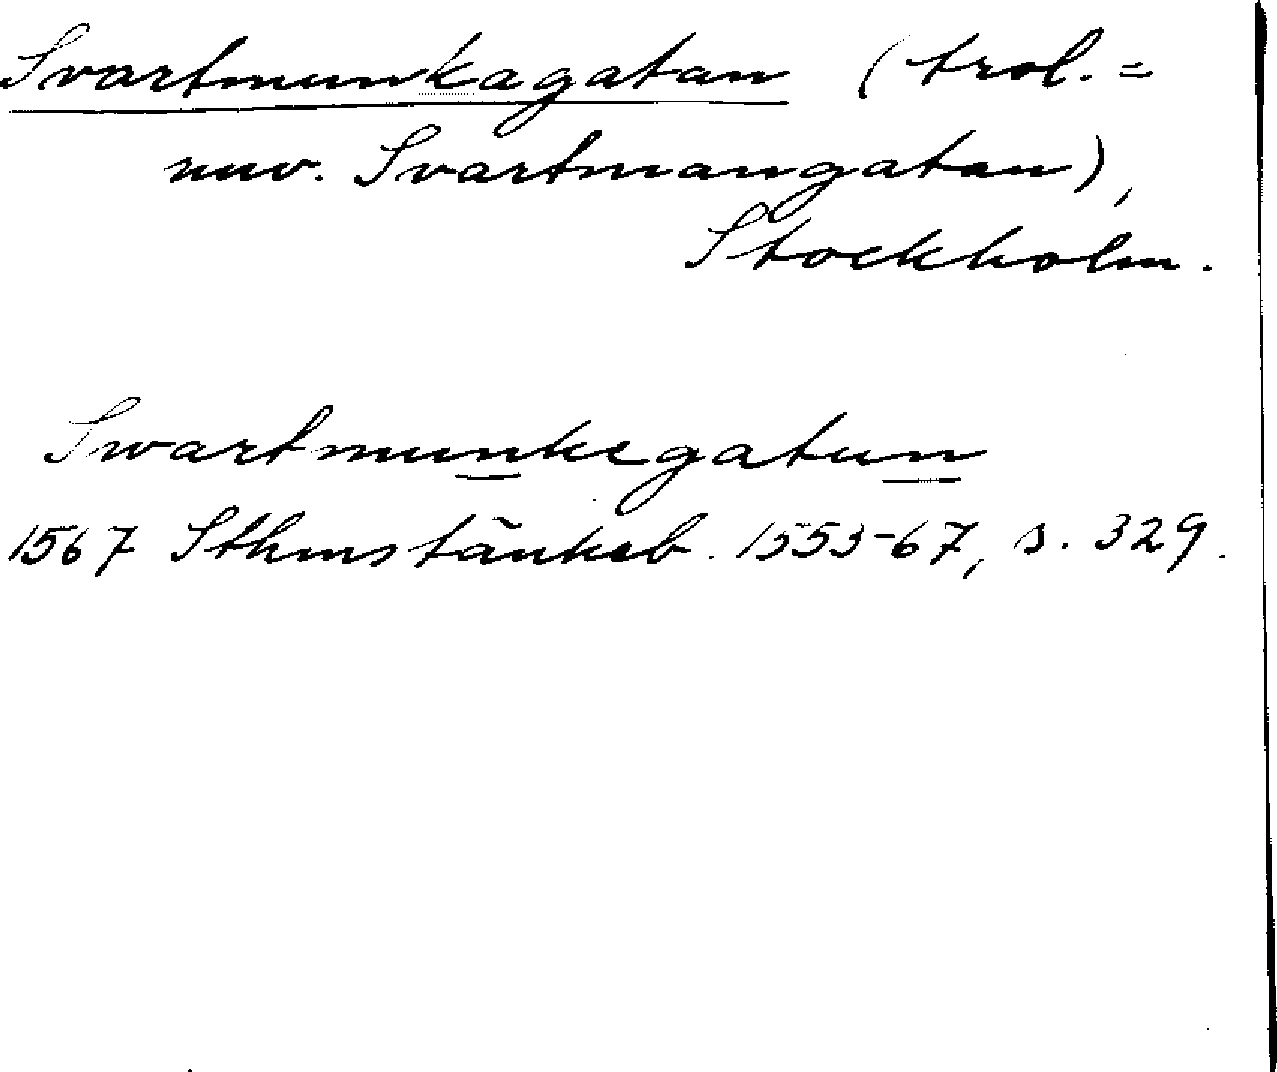 Svartmunkagatan (trol. =
nuv. Svartmangatan),
Stockholm.
Swartmunkegatun
1567 Sthmstänkeb. 1553-67, s. 329.